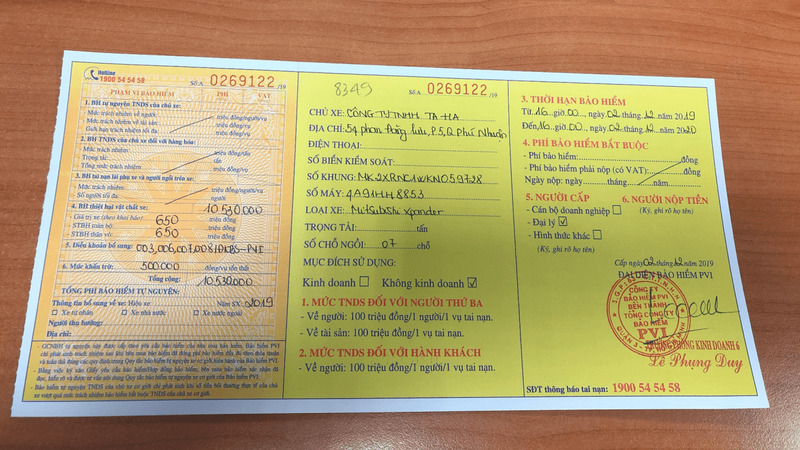 Hotline
1900 54 54 58
Số A: 0269122 /19
PHẠM VI BẢO HIỂM PHÍ VAT
1. BH tự nguyện TNDS của chủ xe:
- Mức trách nhiệm về người: triệu đồng/người/vụ
- Mức trách nhiệm về tài sản: triệu đồng/vụ
Giới hạn trách nhiệm tối đa: triệu đồng/vụ
2. BH TNDS của chủ xe đối với hàng hóa:
- Mức trách nhiệm: triệu đồng/tấn
- Trọng tải: tấn
- Tổng mức trách nhiệm: triệu đồng/vụ
3. BH tai nạn lái phụ xe và người ngồi trên xe:
- Mức trách nhiệm: triệu đồng/người/vụ
- Số người tối đa: người
4. BH thiệt hại vật chất xe: 10.530.000
- Giá trị xe (theo khai báo) 650 triệu đồng
- STBH toàn bộ: triệu đồng
- STBH thân vỏ: 650 triệu đồng
5. Điều khoản bổ sung: 003,006,007,008/ĐKBS-PVI
6. Mức khấu trừ: 500.000 đồng/vụ tổn thất
Tổng cộng: 10.530.000
TỔNG PHÍ BẢO HIỂM TỰ NGUYỆN:
Thông tin bổ sung về xe: Hiệu xe: Năm SX: 2019
Xe tư nhân Xe nhà nước Xe nước ngoài
Người thụ hưởng:
Địa chỉ:
8349
Số A: 0269122 /19
CHỦ XE: CÔNG TY TNHH TA HA
ĐỊA CHỈ: 54 phan Đăng lưu, P.5, Q. Phú Nhuận
ĐIỆN THOẠI:
SỐ BIỂN KIỂM SOÁT:
SỐ KHUNG: MK2XRNC1WKN059728
SỐ MÁY: 4A91HH8853
LOẠI XE: Mitsubishi xpander
TRỌNG TẢI: tấn
SỐ CHỖ NGỒI: 07 chỗ
MỤC ĐÍCH SỬ DỤNG:
Kinh doanh Không kinh doanh
1. MỨC TNDS ĐỐI VỚI NGƯỜI THỨ BA
- Về người: 100 triệu đồng/1 người/1 vụ tai nạn.
- Về tài sản: 100 triệu đồng/1 vụ tai nạn.
2. MỨC TNDS ĐỐI VỚI HÀNH KHÁCH
- Về người: 100 triệu đồng/1 người/1 vụ tai nạn.
3. THỜI HẠN BẢO HIỂM
Từ 16 giờ 00, ngày 02 tháng 12 năm 2019
Đến 16 giờ 00, ngày 02 tháng 12 năm 2020
4. PHÍ BẢO HIỂM BẮT BUỘC
- Phí bảo hiểm: đồng
- Phí bảo hiểm phải nộp (có VAT): đồng
Ngày nộp: ngày tháng năm
5. NGƯỜI CẤP 6. NGƯỜI NỘP TIỀN
- Cán bộ doanh nghiệp (Ký, ghi rõ họ tên)
- Đại lý
- Hình thức khác
(Ký, ghi rõ họ tên)
Cấp ngày 02 tháng 12 năm 2019
ĐẠI DIỆN BẢO HIỂM PVI
CÔNG TY
BẢO HIỂM PVI
BẾN THÀNH
TỔNG CÔNG TY
BẢO HIỂM
PVI
PHÒNG KINH DOANH 6
Lê Phụng Duy
SĐT thông báo tai nạn: 1900 54 54 58